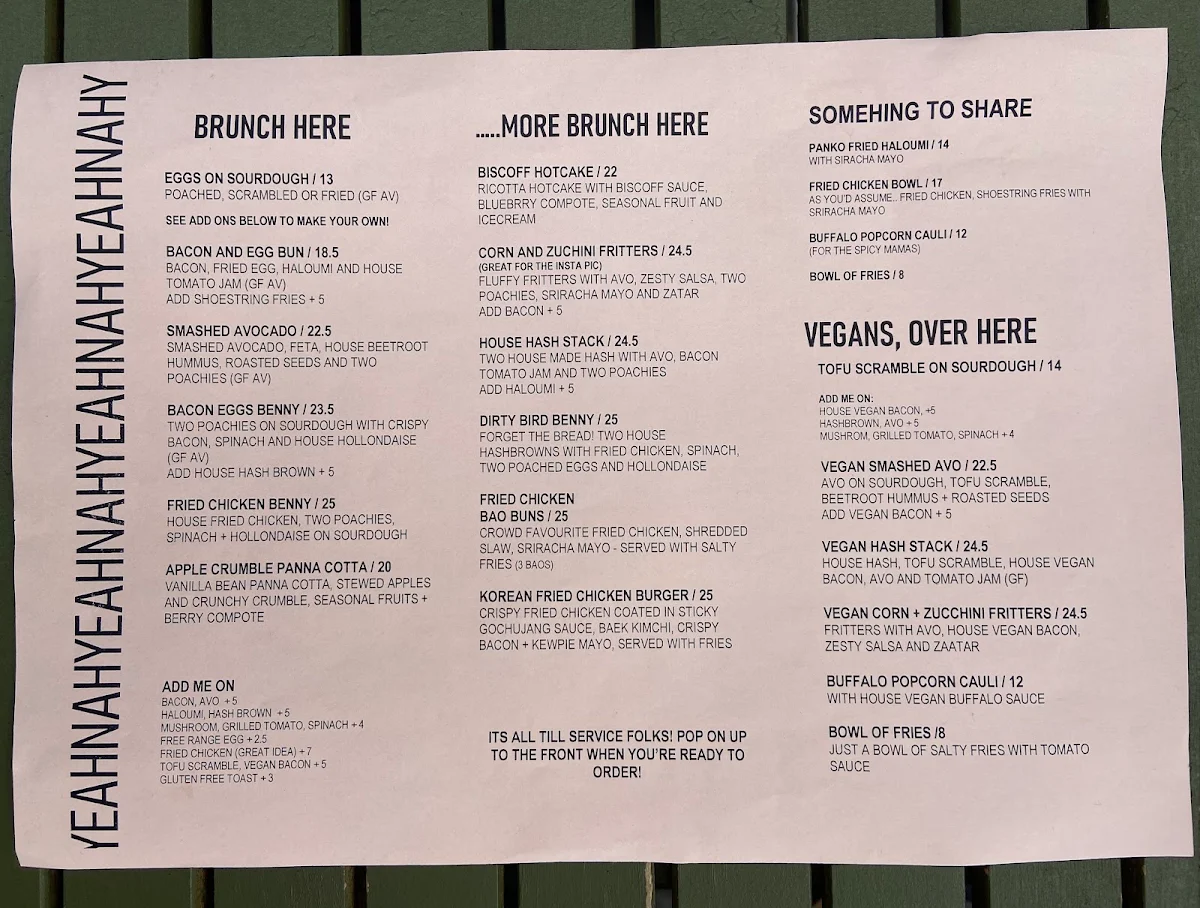 YEAHNAHYEAHNAHYEAHNAHYEAHNAHYEAHNAHY
BRUNCH HERE
EGGS ON SOURDOUGH / 13
POACHED, SCRAMBLED OR FRIED (GF AV)
SEE ADD ONS BELOW TO MAKE YOUR OWN!
BACON AND EGG BUN / 18.5
BACON, FRIED EGG, HALOUMI AND HOUSE
TOMATO JAM (GF AV)
ADD SHOESTRING FRIES + 5
SMASHED AVOCADO / 22.5
SMASHED AVOCADO, FETA, HOUSE BEETROOT
HUMMUS, ROASTED SEEDS AND TWO
POACHIES (GF AV)
BACON EGGS BENNY / 23.5
TWO POACHIES ON SOURDOUGH WITH CRISPY
BACON, SPINACH AND HOUSE HOLLONDAISE
(GF AV)
ADD HOUSE HASH BROWN + 5
FRIED CHICKEN BENNY / 25
HOUSE FRIED CHICKEN, TWO POACHIES,
SPINACH + HOLLONDAISE ON SOURDOUGH
APPLE CRUMBLE PANNA COTTA / 20
VANILLA BEAN PANNA COTTA, STEWED APPLES
AND CRUNCHY CRUMBLE, SEASONAL FRUITS +
BERRY COMPOTE
ADD ME ON
BACON, AVO +5
HALOUMI, HASH BROWN +5
MUSHROOM, GRILLED TOMATO, SPINACH +4
FREE RANGE EGG +2.5
FRIED CHICKEN (GREAT IDEA) +7
TOFU SCRAMBLE, VEGAN BACON +5
GLUTEN FREE TOAST +3
.....MORE BRUNCH HERE
BISCOFF HOTCAKE / 22
RICOTTA HOTCAKE WITH BISCOFF SAUCE,
BLUEBRRY COMPOTE, SEASONAL FRUIT AND
ICECREAM
CORN AND ZUCHINI FRITTERS / 24.5
(GREAT FOR THE INSTA PIC)
FLUFFY FRITTERS WITH AVO, ZESTY SALSA, TWO
POACHIES, SRIRACHA MAYO AND ZATAR
ADD BACON + 5
HOUSE HASH STACK / 24.5
TWO HOUSE MADE HASH WITH AVO, BACON
TOMATO JAM AND TWO POACHIES
ADD HALOUMI + 5
DIRTY BIRD BENNY / 25
FORGET THE BREAD! TWO HOUSE
HASHBROWNS WITH FRIED CHICKEN, SPINACH,
TWO POACHED EGGS AND HOLLONDAISE
FRIED CHICKEN
BAO BUNS / 25
CROWD FAVOURITE FRIED CHICKEN, SHREDDED
SLAW, SRIRACHA MAYO - SERVED WITH SALTY
FRIES (3 BAOS)
KOREAN FRIED CHICKEN BURGER / 25
CRISPY FRIED CHICKEN COATED IN STICKY
GOCHUJANG SAUCE, BAEK KIMCHI, CRISPY
BACON + KEWPIE MAYO, SERVED WITH FRIES
ITS ALL TILL SERVICE FOLKS! POP ON UP
TO THE FRONT WHEN YOU'RE READY TO
ORDER!
SOMEHING TO SHARE
PANKO FRIED HALOUMI / 14
WITH SIRACHA MAYO
FRIED CHICKEN BOWL / 17
AS YOU'D ASSUME.. FRIED CHICKEN, SHOESTRING FRIES WITH
SRIRACHA MAYO
BUFFALO POPCORN CAULI / 12
(FOR THE SPICY MAMAS)
BOWL OF FRIES / 8
VEGANS, OVER HERE
TOFU SCRAMBLE ON SOURDOUGH / 14
ADD ME ON:
HOUSE VEGAN BACON, +5
HASHBROWN, AVO + 5
MUSHROM, GRILLED TOMATO, SPINACH + 4
VEGAN SMASHED AVO / 22.5
AVO ON SOURDOUGH, TOFU SCRAMBLE,
BEETROOT HUMMUS + ROASTED SEEDS
ADD VEGAN BACON + 5
VEGAN HASH STACK / 24.5
HOUSE HASH, TOFU SCRAMBLE, HOUSE VEGAN
BACON, AVO AND TOMATO JAM (GF)
VEGAN CORN + ZUCCHINI FRITTERS / 24.5
FRITTERS WITH AVO, HOUSE VEGAN BACON,
ZESTY SALSA AND ZAATAR
BUFFALO POPCORN CAULI / 12
WITH HOUSE VEGAN BUFFALO SAUCE
BOWL OF FRIES /8
JUST A BOWL OF SALTY FRIES WITH TOMATO
SAUCE